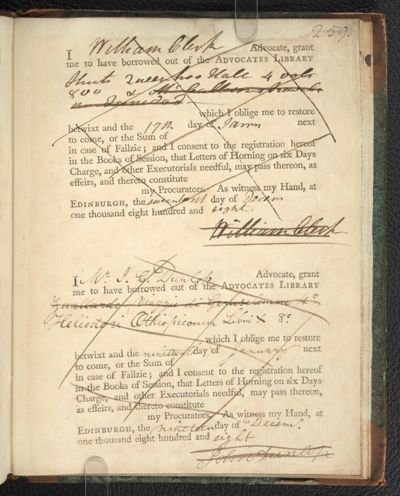 259.
I William Clerk Advocate, grant
me to have borrowed out of the ADVOCATES LIBRARY
Hall 4 vols
800 &
which I oblige me to restore
betwixt and the 17th day of next
to come, or the Sum of
in case of Failzie; and I consent to the registration hereof
in the Books of Session, that Letters of Horning on six Days
Charge, and other Executorials needful, may pass thereon, as
effeirs, and thereto constitute
my Procurators. As witness my Hand, at
EDINBURGH, the day of Decem
one thousand eight hundred and eight.
William Clerk
I Mr. J. C. Dunlop Advocate, grant
me to have borrowed out of the ADVOCATES LIBRARY
Zuallardo Viaggio di Gerusalemme 4o
Heliodori Ethiopicorum Libri X 8o
which I oblige me to restore
betwixt and the nineteen day of January next
to come, or the Sum of
in case of Failzie; and I consent to the registration hereof
in the Books of Session, that Letters of Horning on six Days
Charge, and other Executorials needful, may pass thereon,
as effeirs, and thereto constitute
my Procurators. As witness my Hand, at
EDINBURGH, the nineteen day of Decem.
one thousand eight hundred and eight
John Dunlop